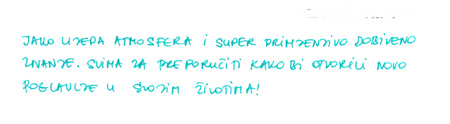 JAKO LIJEPA ATMOSFERA I SUPER PRIMJENJIVO DOBIVENO
ZNANJE. SVIMA ZA PREPORUČITI KAKO BI OTVORILI NOVO
POGLAVLJE U SVOJIM ŽIVOTIMA!